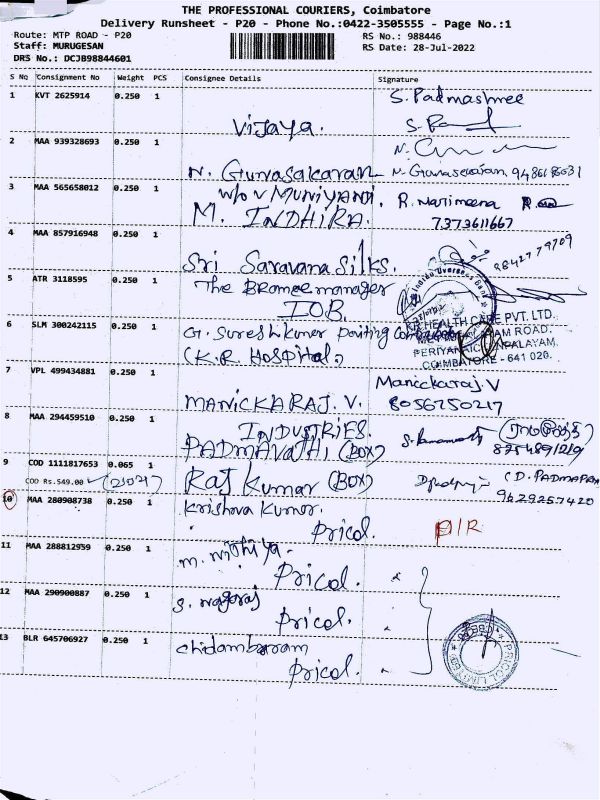 THE PROFESSIONAL COURIERS, Coimbatore
Delivery Runsheet - P20 - Phone No.:0422-3505555 - Page No.:1
Route: MTP ROAD - P20
RS No.: 988446
Staff: MURUGESAN
RS Date: 28-Jul-2022
DRS No.: DCJB98844601
S No Consignment No Weight PCS Consignee Details Signature
1 KVT 2625914 0.250 1
S. Padmashree
Vijaya.
2 MAA 939328693 0.250 1
N. Gunasakaran
3 MAA 565658012 0.250 1
w/o v Muniyandi.
M. INDHIRA.
7373611667
4 MAA 857916948 0.250 1
Sri Saravana Silks.
9842779709
5 ATR 3118595 0.250 1
The manager
IOB.
Indian Overseas Bank
6 SLM 300242115 0.250 1
G. Sureshkumar
(K.R. Hospital)
HEALTH CARE PVT. LTD.
ROAD,
COIMBATORE - 641 020.
7 VPL 499434881 0.250 1
Manickaraj V
MANICKARAJ. V.
8056750217
8 MAA 294459510 0.250 1
INDUSTRIES.
PADMAVATHI (BOX)
9 COD 1111817653 0.065 1
COD Rs.549.00
Raj Kumar (BOX)
9629257420
10 MAA 280908738 0.250 1
Krishna Kumar.
Pricol.
D/R
11 MAA 288812959 0.250 1
m. nithiya.
Pricol.
12 MAA 290900887 0.250 1
S. nagaraj
Pricol.
13 BLR 645706927 0.250 1
chidambaram
Pricol.
PRICOL LIMITED